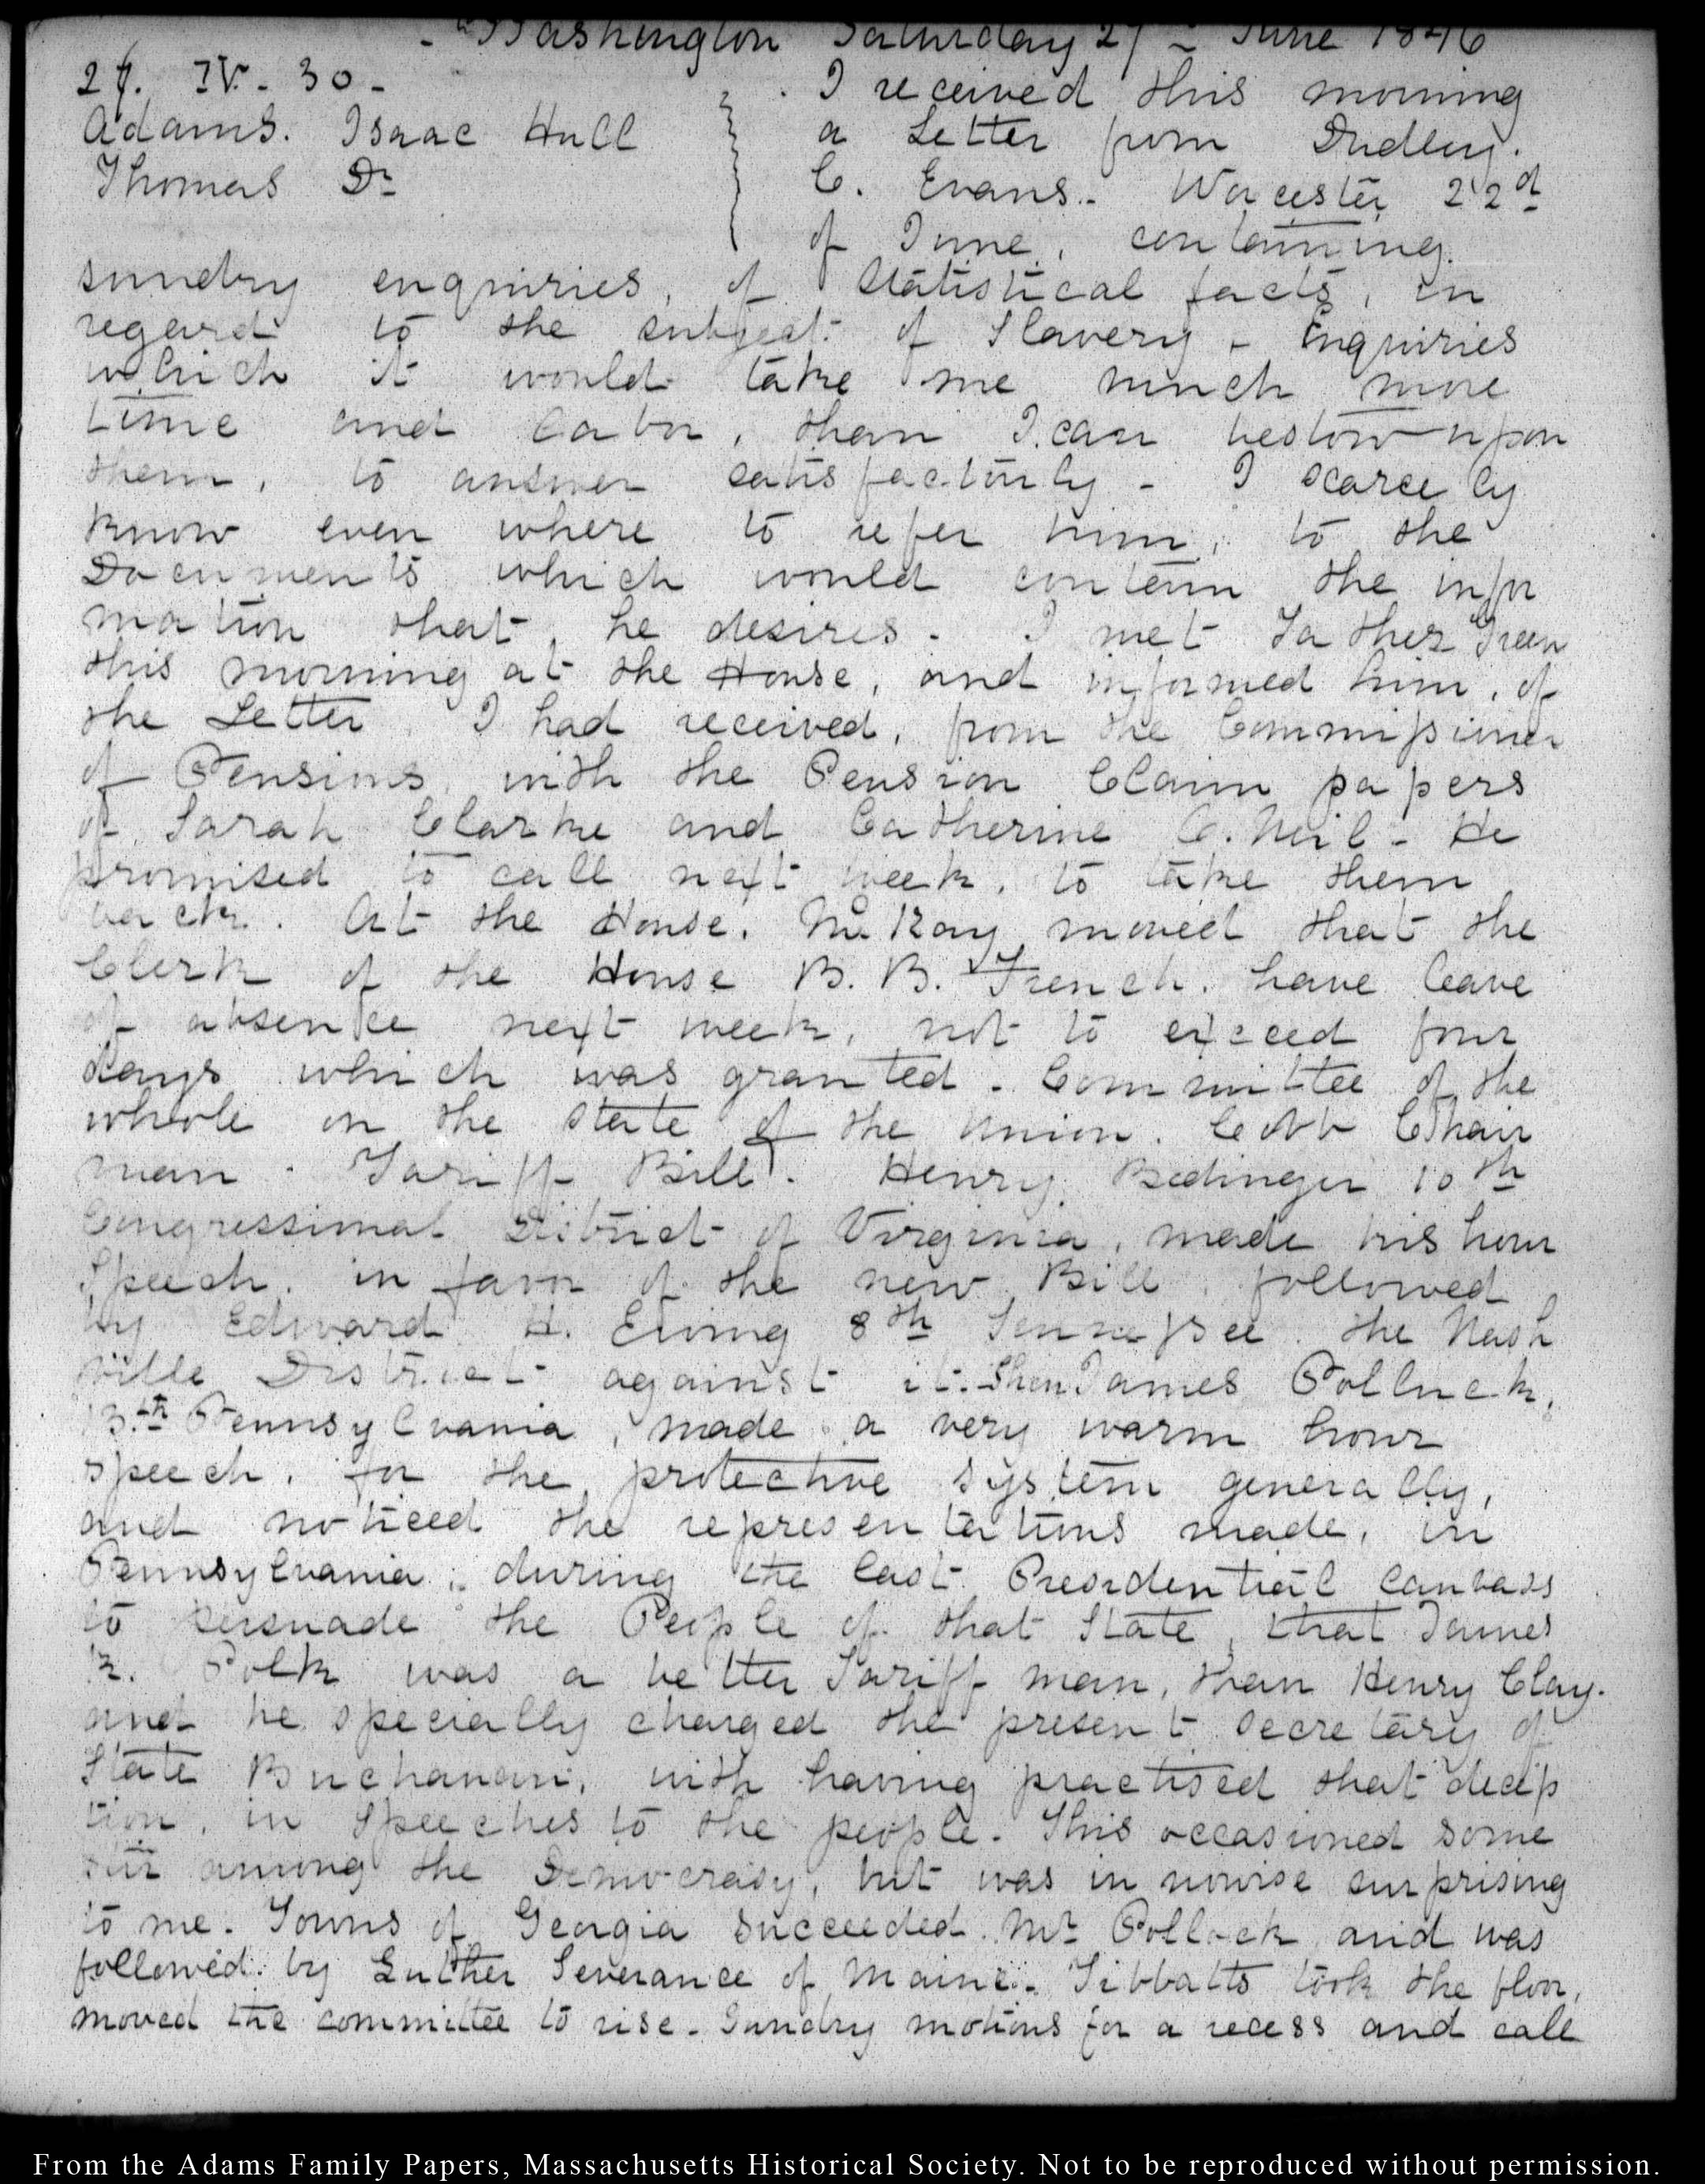 Washington Saturday 27th June 1846
27. IV. 30 -
Adams. Isaac Hull
Thomas Dr
I received this morning
a Letter from Dudley.
C. Evans. Worcester 22d
of June, containing
sundry enquiries, of Statistical facts, in
regard to the subject of Slavery - Enquiries
which it would take me much more
time and labor, than I can bestow upon
them, to answer satisfactorily - I scarcely
know even where to refer him, to the
Documents which would contain the infor
mation that he desires. I met Joshua Green
this morning at the House, and informed him, of
the Letter I had received, from the Commissioner
of Pensions, with the Pension Claim papers
of Sarah Clarke and Catherine O. Neil - He
promised to call next week, to take them
back. At the House. McKay moved that the
Clerk of the House B. B. French, have leave
of absentce next week, not to exceed four
days which was granted - Committee of the
whole on the state of the Union. Cobb Chair
man. Tariff Bill. Henry Bedinger 10th
Congressional District of Virginia, made his hour
Speech. in favor of the new Bill, followed
by Edward H. Ewing 8th Tennessee. the Nash
ville District against it. Then James Pollock,
13.th Pennsylvania, made a very warm hour
speech, for the protective system generally,
and noticed the representations made, in
Pennsylvania, during the last Presidential canvass
to persuade the People of that State, that James
K. Polk was a better Tariff man, than Henry Clay.
and he specially charged the present Secretary of
State Buchanan, with having practised that decep
tion, in speeches to the people. This occasioned some
stir among the Democracy, but was in nowise surprising
to me. Towns of Georgia succeeded Mr Pollock and was
followed by Luther Severance of Maine. Tibbatts took the floor,
moved the committee to rise. Sundry motions for a recess and call
From the Adams Family Papers, Massachusetts Historical Society. Not to be reproduced without permission.